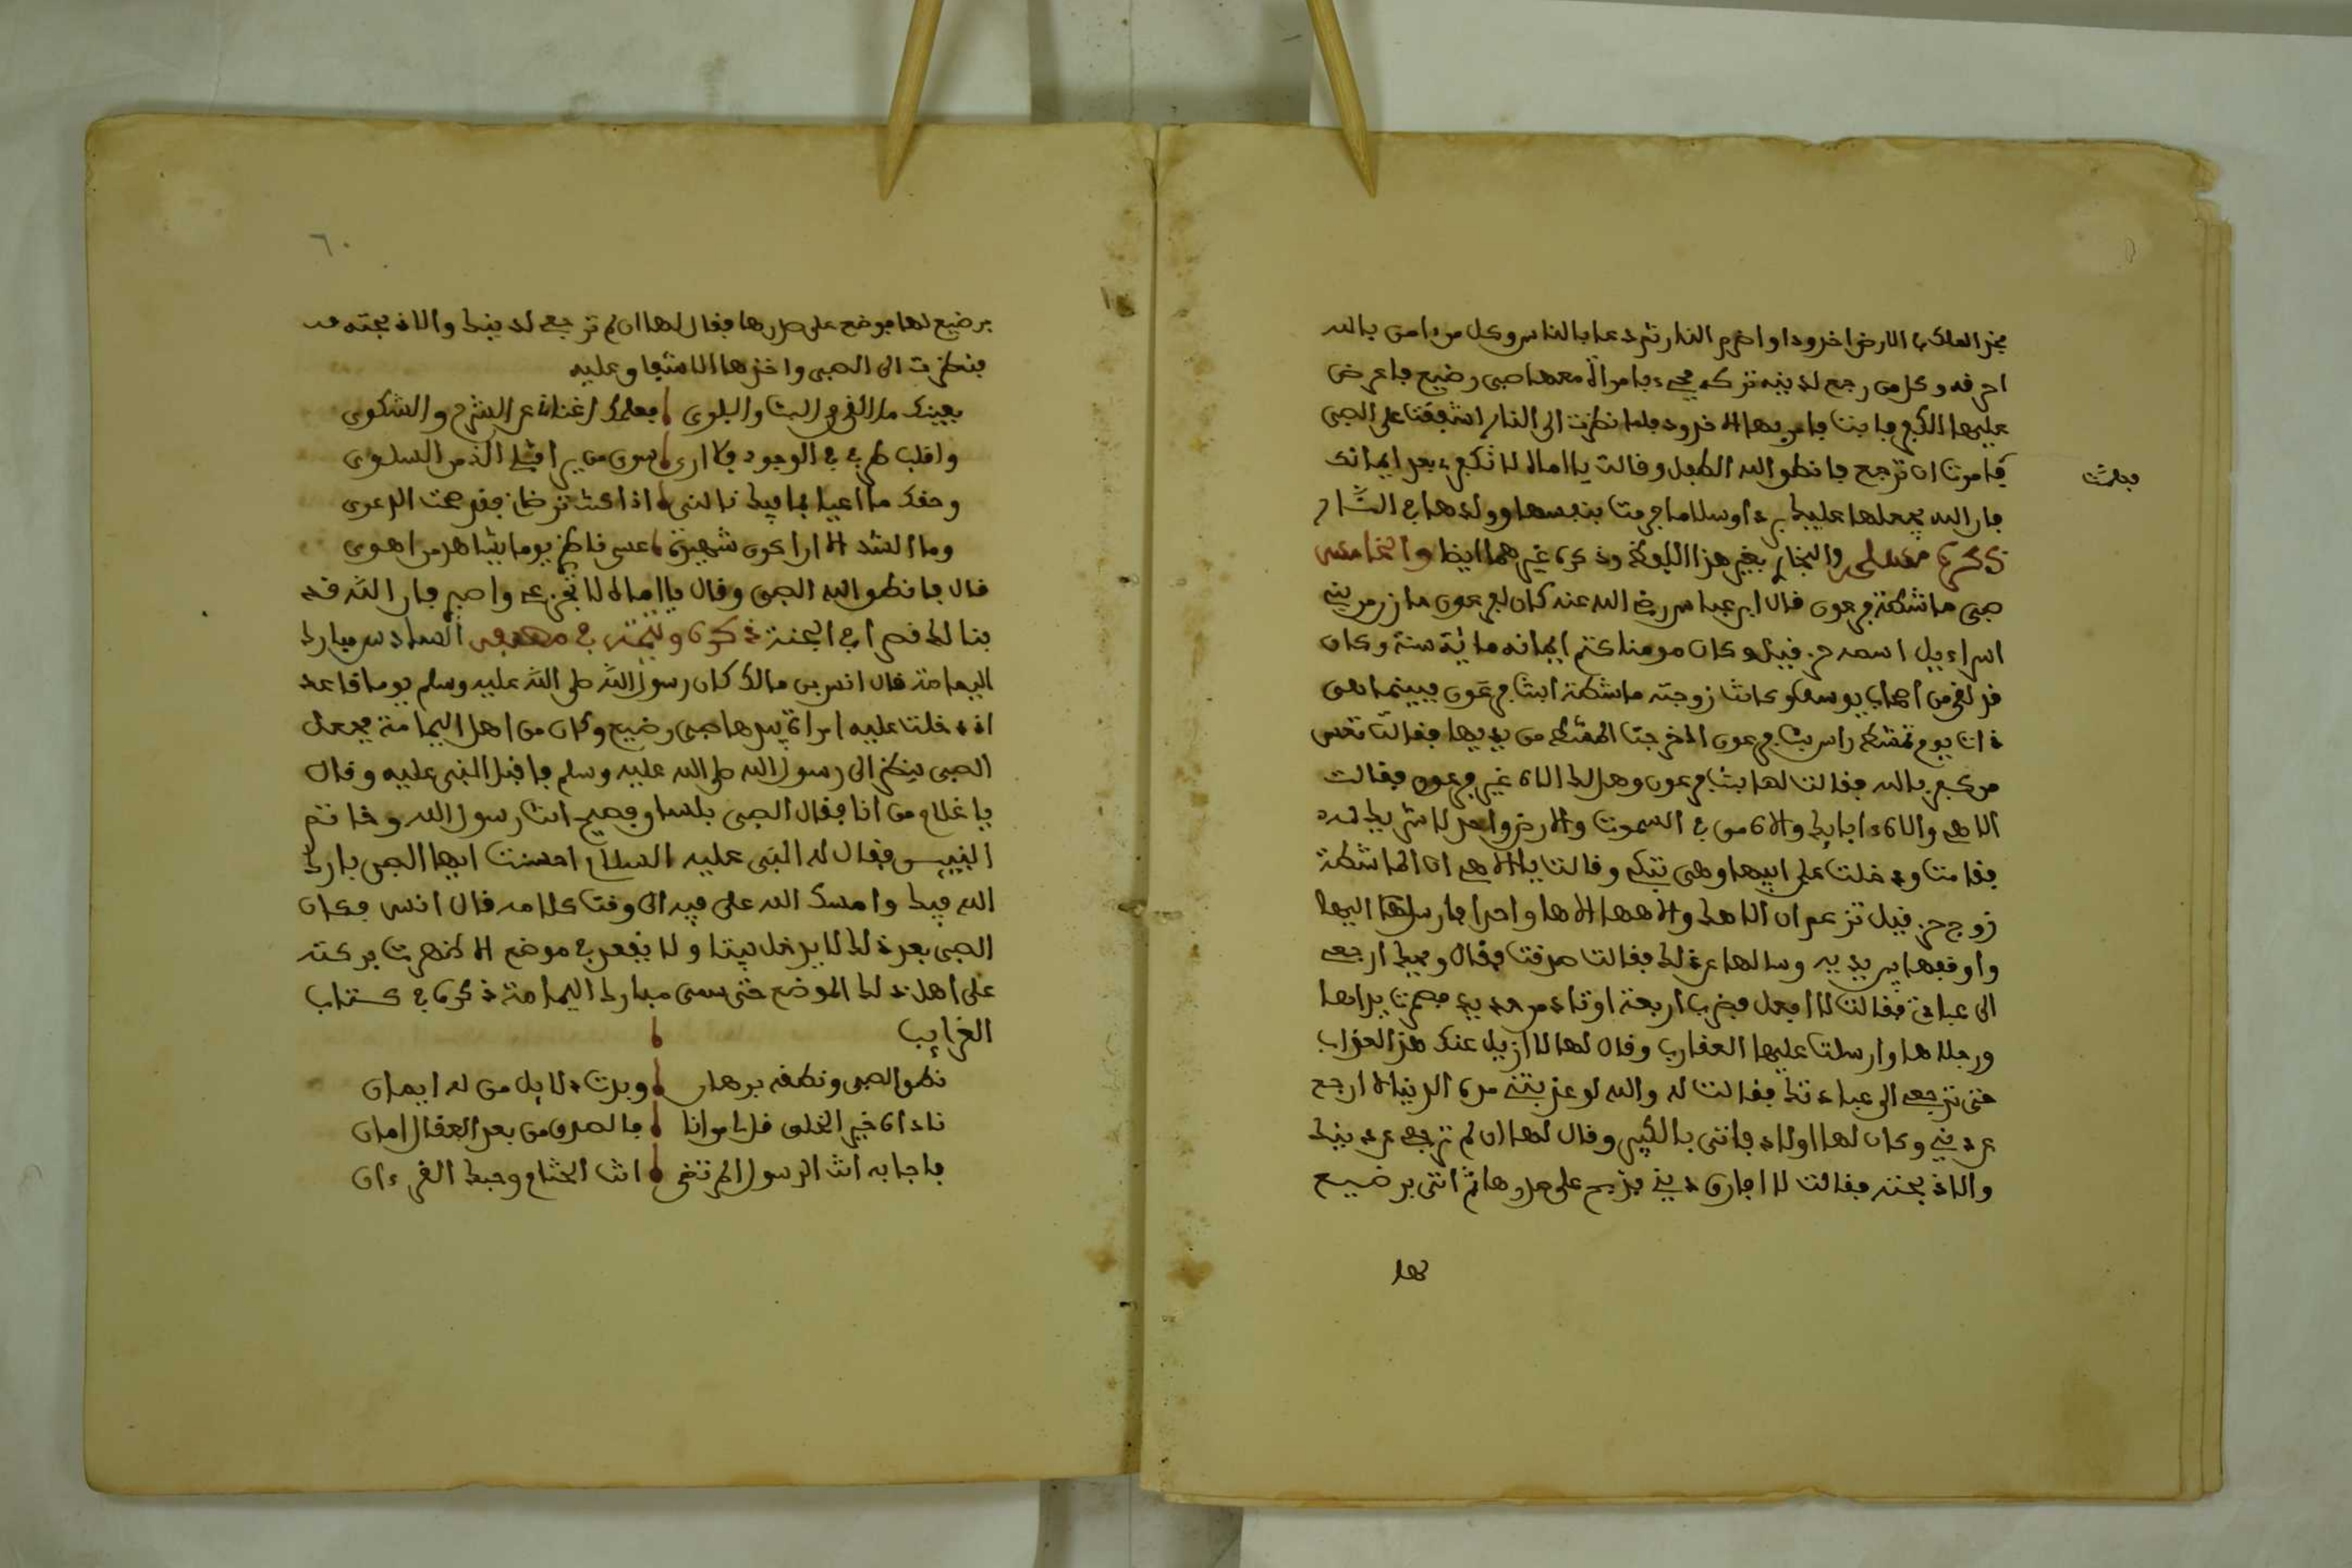 فخد الملك في الارض اخدودا واضرم النار ثم دعا بالناس وكل من ءامن بالله
احرقه وكل من رجع لدينه تركه فجيء بامراة معها صبي رضيع فاعرض
عليها الكفر فابت فامر بها الاخدود فلما نظرت الى النار اشفقت على الصبي
فامرت ان ترجع فانطق الله الطفل وقالت يا اماه لا تكفرء بعد ايمانك
فجعلت
فان الله يجعلها عليك بردا وسلاما فرمت بنفسها وولدها في النار
ذكره مسلم والبخاري بغير هذا اللفظ وذكره غيرهما ايضا والخامس
صبي ماشطة فرعون قال ابن عباس رضي الله عنه كان لفرعون خازن من بني
اسراءيل اسمه حزقيل وكان مومنا كتم ايمانه مائة سنة وكان
قد لقي من اصحاب يوسف وكانت زوجته ماشطة ابنت فرعون فبينما هي
ذات يوم تمشط راس بنت فرعون اذ خرجت المشط من يديها فقالت تعس
من كفر بالله فقالت لها بنت فرعون وهل لك الاه غير فرعون فقالت
الاهي والاه ءاباك والاه من في السموت والارض واحد لا شريك له
فقامت ودخلت على ابيها وهي تبكي وقالت يا الاهي ان الماشطة
زوج حزقيل تزعم ان الاهك والاهها الاها واحدا فارسل اليها
واوقفها بين يديه وسالها عن ذلك فقالت صدقت فقال ويحك ارجعي
الى عبادتي فقالت لا افعل فضرب اربعة اوتاد من حديد فصمرت يداها
ورجلاها وارسلت عليها العقارب وقال لها لا ازيل عنك هذ العذاب
حتى ترجعي الى عبادتك فقالت له والله لو عذبتني مدة الدنيا لا ارجع
عن ديني وكان لها اولاد فاتى بالكبير وقال لها ان لم ترجعي عن دينك
والا ذبحته فقالت لا افارق ديني فذبح على صدرها ثم اتى برضيع
لها
٦٠
برضيع لها فوضع على صدرها فقال لها ان لم ترجعي لدينك والا ذبحته
فنظرت الى الصبي واخذها الاشفاق عليه
بعينك ما القى من البث والبلوى فعلمك اغنان عن الشرح والشكوى
واقلب طرفي في الوجود فلا ارى سوى من يرا الذ من السلوى
وحقك ما اعيا بما فيك نالني اذا كنت ترضان فقد صحت الدعوى
وما القصد الا ان اكون شهيدة عسى ناظري يوما يشاهد من اهوى
قال فانطق الله الصبي وقال يا اماه لا تجزعي واصبر فان الله قد
بنا لك قصرا في الجنة ذكره السادس مبارك
اليمامة قال انس بن مالك كان رسول الله صلى الله عليه وسلم يوما قاعد
اذ دخلت عليه امراة بيدها صبي رضيع وكان من اهل اليمامة فجعل
الصبي ينظر الى رسول الله صلى الله عليه وسلم فاقبل النبي عليه وقال
يا غلام من انا فقال الصبي بلسان فصيح انت رسول الله وخاتم
النبيين فقال له النبي عليه السلام احسنت ايها الصبي بارك
الله فيك وامسك الله على فيه الى وقت كلامه قال انس فكان
الصبي بعد ذلك لا يدخل بيتا ولا يقعد في موضع الا ظهرت بركته
على اهل ذلك الموضع حتى سمي مبارك اليمامة ذكره في كتاب
الغرايب
نطق الصبي ونطقه برهان وبدت دلايل من له ايمان
ناداه خير الخلق قل لي من انا فالصدق من بعد العقال امان
فاجابه انت الرسول المرتضى انت الختام وحبك القرءان